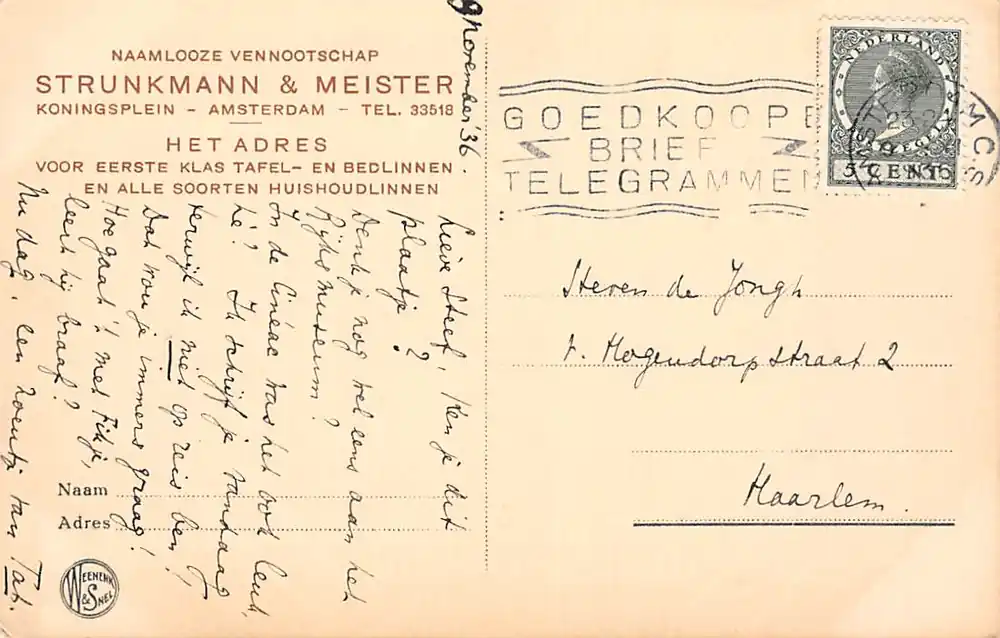 NAAMLOOZE VENNOOTSCHAP
STRUNKMANN & MEISTER
KONINGSPLEIN - AMSTERDAM - TEL. 33518
HET ADRES
VOOR EERSTE KLAS TAFEL- EN BEDLINNEN
EN ALLE SOORTEN HUISHOUDLINNEN
9 November '36.
Lieve Steef, Ken je dit
plaatje?
Denk je nog wel eens aan het
Rijksmuseum?
In de linéac was het ook leuk,
hè? Ik schrijf je vandaag
terwijl ik niet op reis ben!
Dat wou je immers graag!
Hoe gaat 't met Fikje,
leert hij braaf?
Nu dag, een zoentje van Tab.
Naam
Adres
WEENENK
& SNEL
GOEDKOOPE
BRIEF
TELEGRAMMEN
NEDERLAND
5 CENT
Steven de Jongh
v. Hogendorpstraat 2
Haarlem.